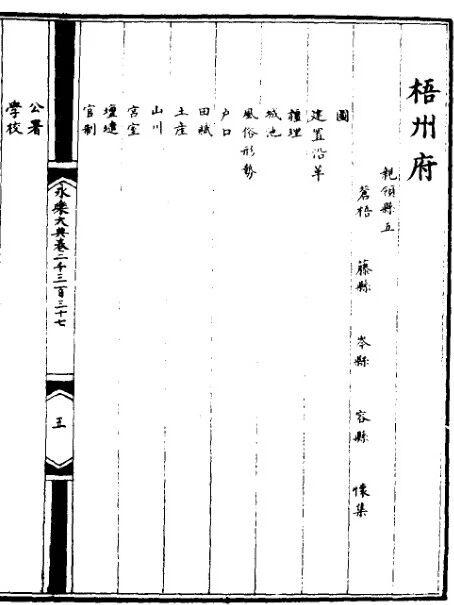 梧州府
親領縣五
蒼梧 藤縣 岑縣 容縣 懷集
圖
建置沿革
疆理
城池
風俗形勢
户口
田賦
土産
山川
宮室
壇壝
官制
永樂大典卷二千三百三十七
王
公署
學校